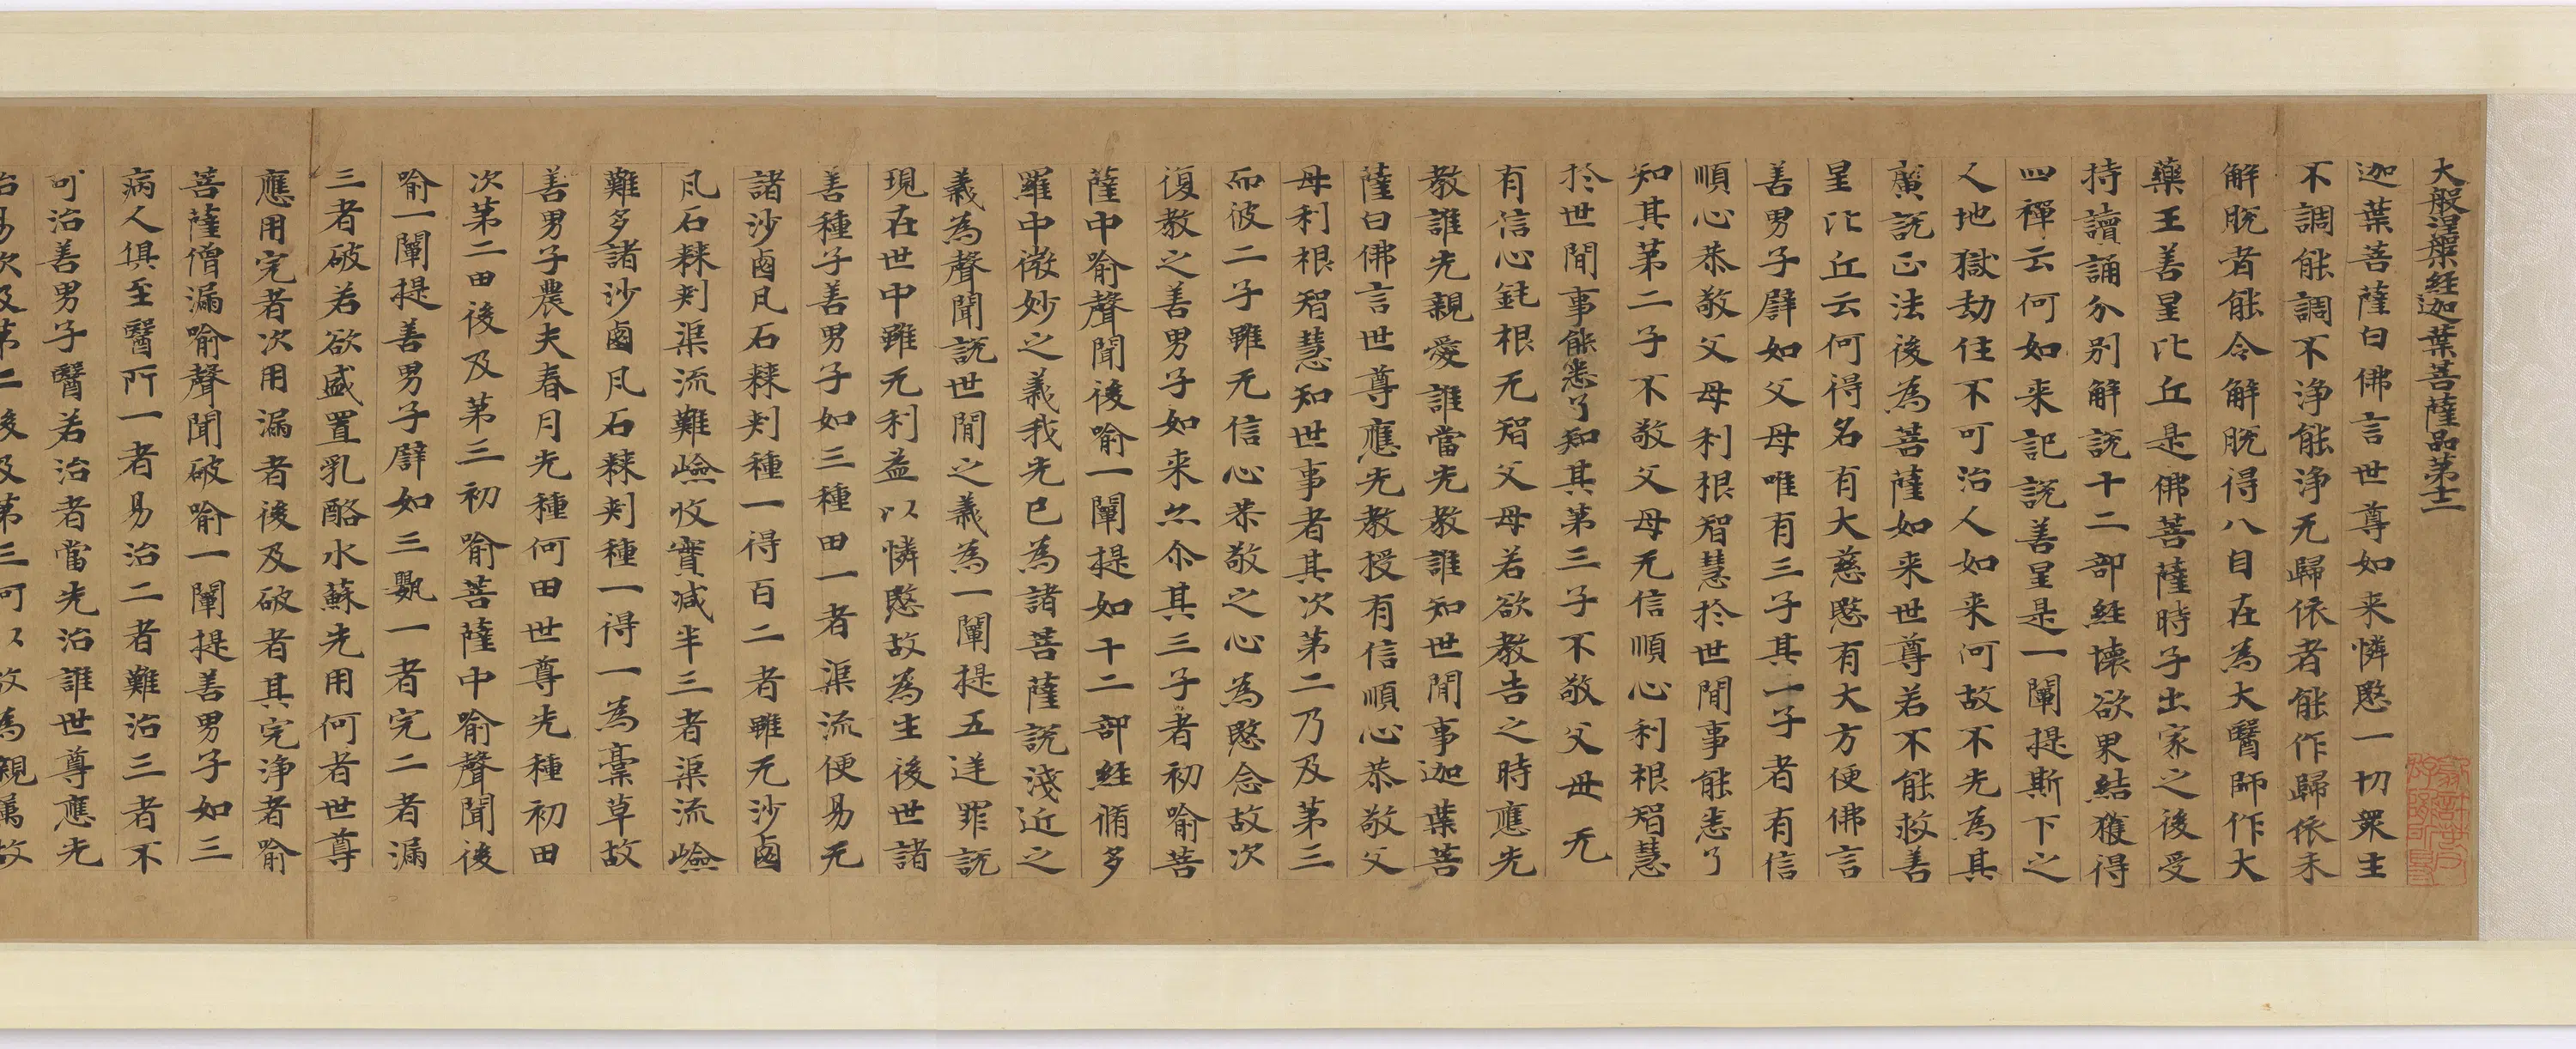 大般涅槃經迦葉菩薩品第十二
迦葉菩薩白佛言世尊如来憐愍一切眾生
不調能調不淨能淨无歸依者能作歸依未
解脫者能令解脫得八自在為大醫師作大
藥王善星比丘是佛菩薩時子出家之後受
持讀誦分別解說十二部經壞欲界結獲得
四禪云何如来記說善星是一闡提斯下之
人地獄劫住不可治人如来何故不先為其
廣說正法後為菩薩如来世尊若不能救善
星比丘云何得名有大慈愍有大方便佛言
善男子辟如父母唯有三子其一子者有信
順心恭敬父母利根智慧於世間事能悉了
知其第二子不敬父母无信順心利根智慧
於世間事能悉了知其第三子不敬父母无
有信心鈍根无智父母若欲教告之時應先
教誰先親愛誰當先教誰知世間事迦葉菩
薩白佛言世尊應先教授有信順心恭敬父
母利根智慧知世事者其次第二乃及第三
而彼二子雖无信心恭敬之心為愍念故次
復教之善男子如来亦尒其三子者初喻菩
薩中喻聲聞後喻一闡提如十二部經脩多
羅中微妙之義我先已為諸菩薩說淺近之
義為聲聞說世間之義為一闡提五逆罪說
現在世中雖无利益以憐愍故為生後世諸
善種子善男子如三種田一者渠流便易无
諸沙鹵凡石棘刾種一得百二者雖无沙鹵
凡石棘刾渠流難嶮收實減半三者渠流嶮
難多諸沙鹵凡石棘刾種一得一為藁草故
善男子農夫春月先種何田世尊先種初田
次第二田後及第三初喻菩薩中喻聲聞後
喻一闡提善男子辟如三甖一者完二者漏
三者破若欲盛置乳酪水蘇先用何者世尊
應用完者次用漏者後及破者其完淨者喻
菩薩僧漏喻聲聞破喻一闡提善男子如三
病人俱至醫所一者易治二者難治三者不
可治善男子醫若治者當先治誰世尊應先
治易次及第二後及第三何以故為親屬故